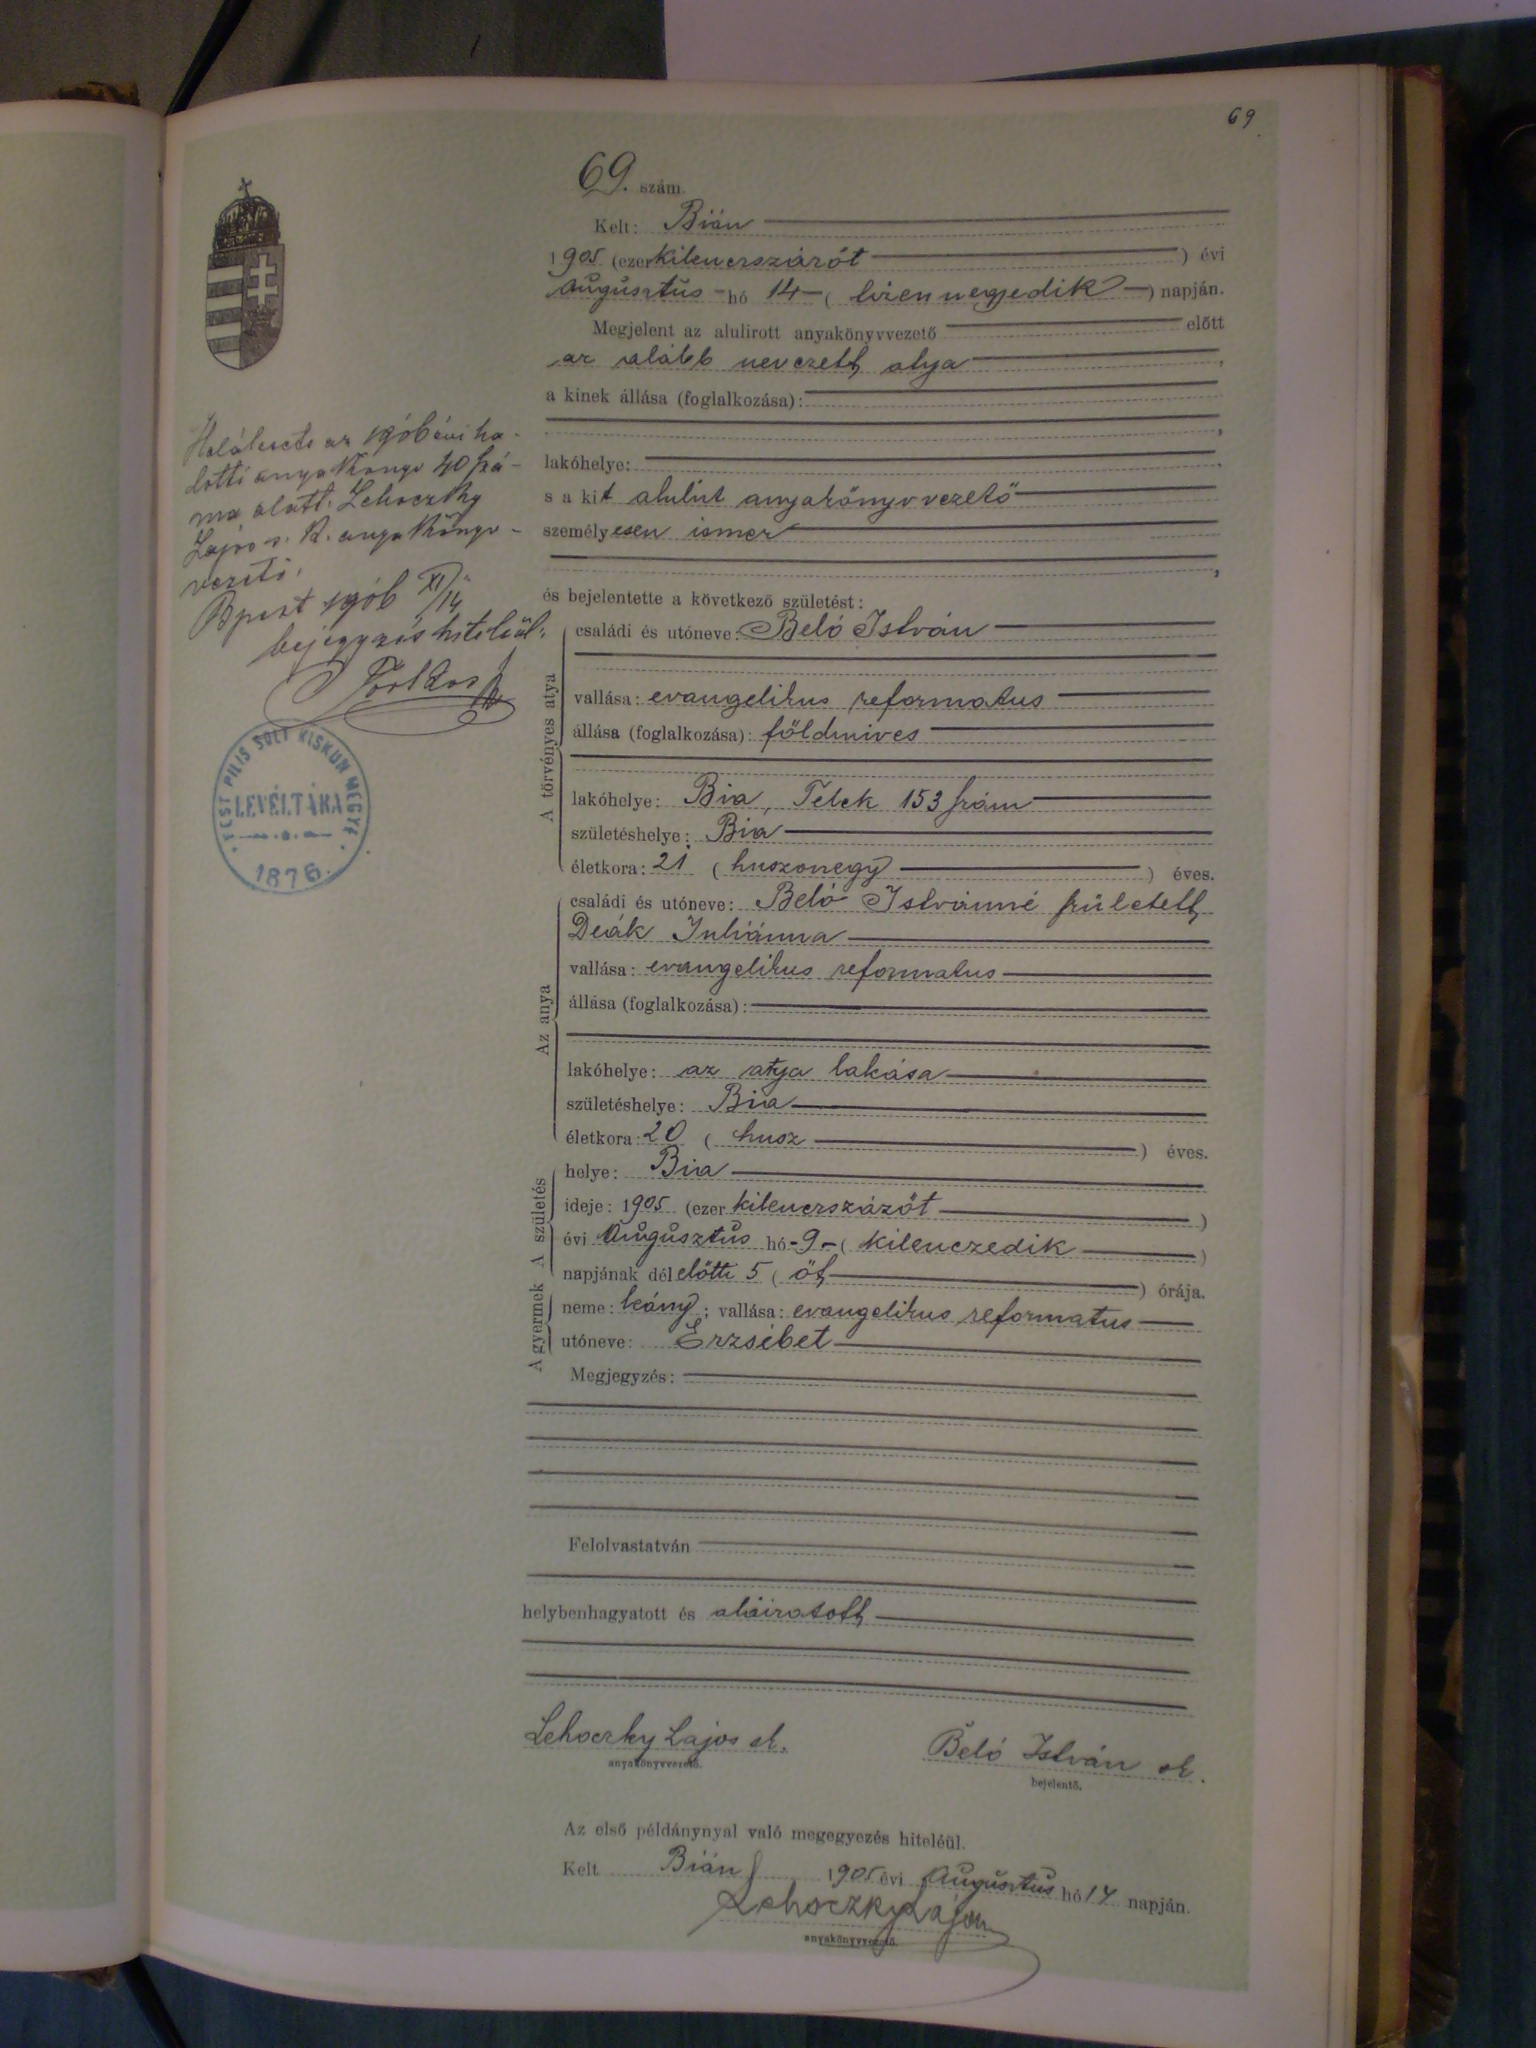 69
69. szám.
Kelt: Bián
1905 (ezer kilenczszázöt ) évi
Augusztus hó 14 ( tizennegyedik ) napján.
Megjelent az alulirott anyakönyvvezető előtt
az alább nevezett atya ,
a kinek állása (foglalkozása):
,
lakóhelye: ,
s a kit alulírt anyakönyvvezető
személyesen ismer
,
és bejelentette a következő születést:
A törvényes atya
családi és utóneve: Beló István
vallása: evangelikus reformatus
állása (foglalkozása): földmives
lakóhelye: Bia, Telek 153 szám
születéshelye: Bia
életkora: 21 ( huszonegy ) éves.
Az anya
családi és utóneve: Beló Istvánné született
Deák Juliánna
vallása: evangelikus reformatus
állása (foglalkozása):
lakóhelye: az atya lakása
születéshelye: Bia
életkora: 20 ( husz ) éves.
A születés
helye: Bia
ideje: 1905 (ezer kilenczszázöt )
évi Augusztus hó 9 ( kilenczedik )
napjának délelőtti 5 ( öt ) órája.
A gyermek
neme: leány; vallása: evangelikus reformatus
utóneve: Erzsébet
Megjegyzés:
Felolvastatván
helybenhagyatott és aláiratott
Lehoczky Lajos sk.
anyakönyvvezető.
Beló István sk.
bejelentő.
Az első példánynyal való megegyezés hiteléül.
Kelt Bián 1905 évi Augusztus hó 14 napján.
Lehoczky Lajos
anyakönyvvezető.
Halálesete az 1906 évi ha-
lotti anyakönyv 40 szá-
ma alatt. Lehoczky
Lajos s. k. anyakönyv-
vezető.
Bpest 1906 XI/14
bejegyzés hiteléül:
PEST PILIS SOLT KISKUN MEGYE
LEVÉLTÁRA
1876.